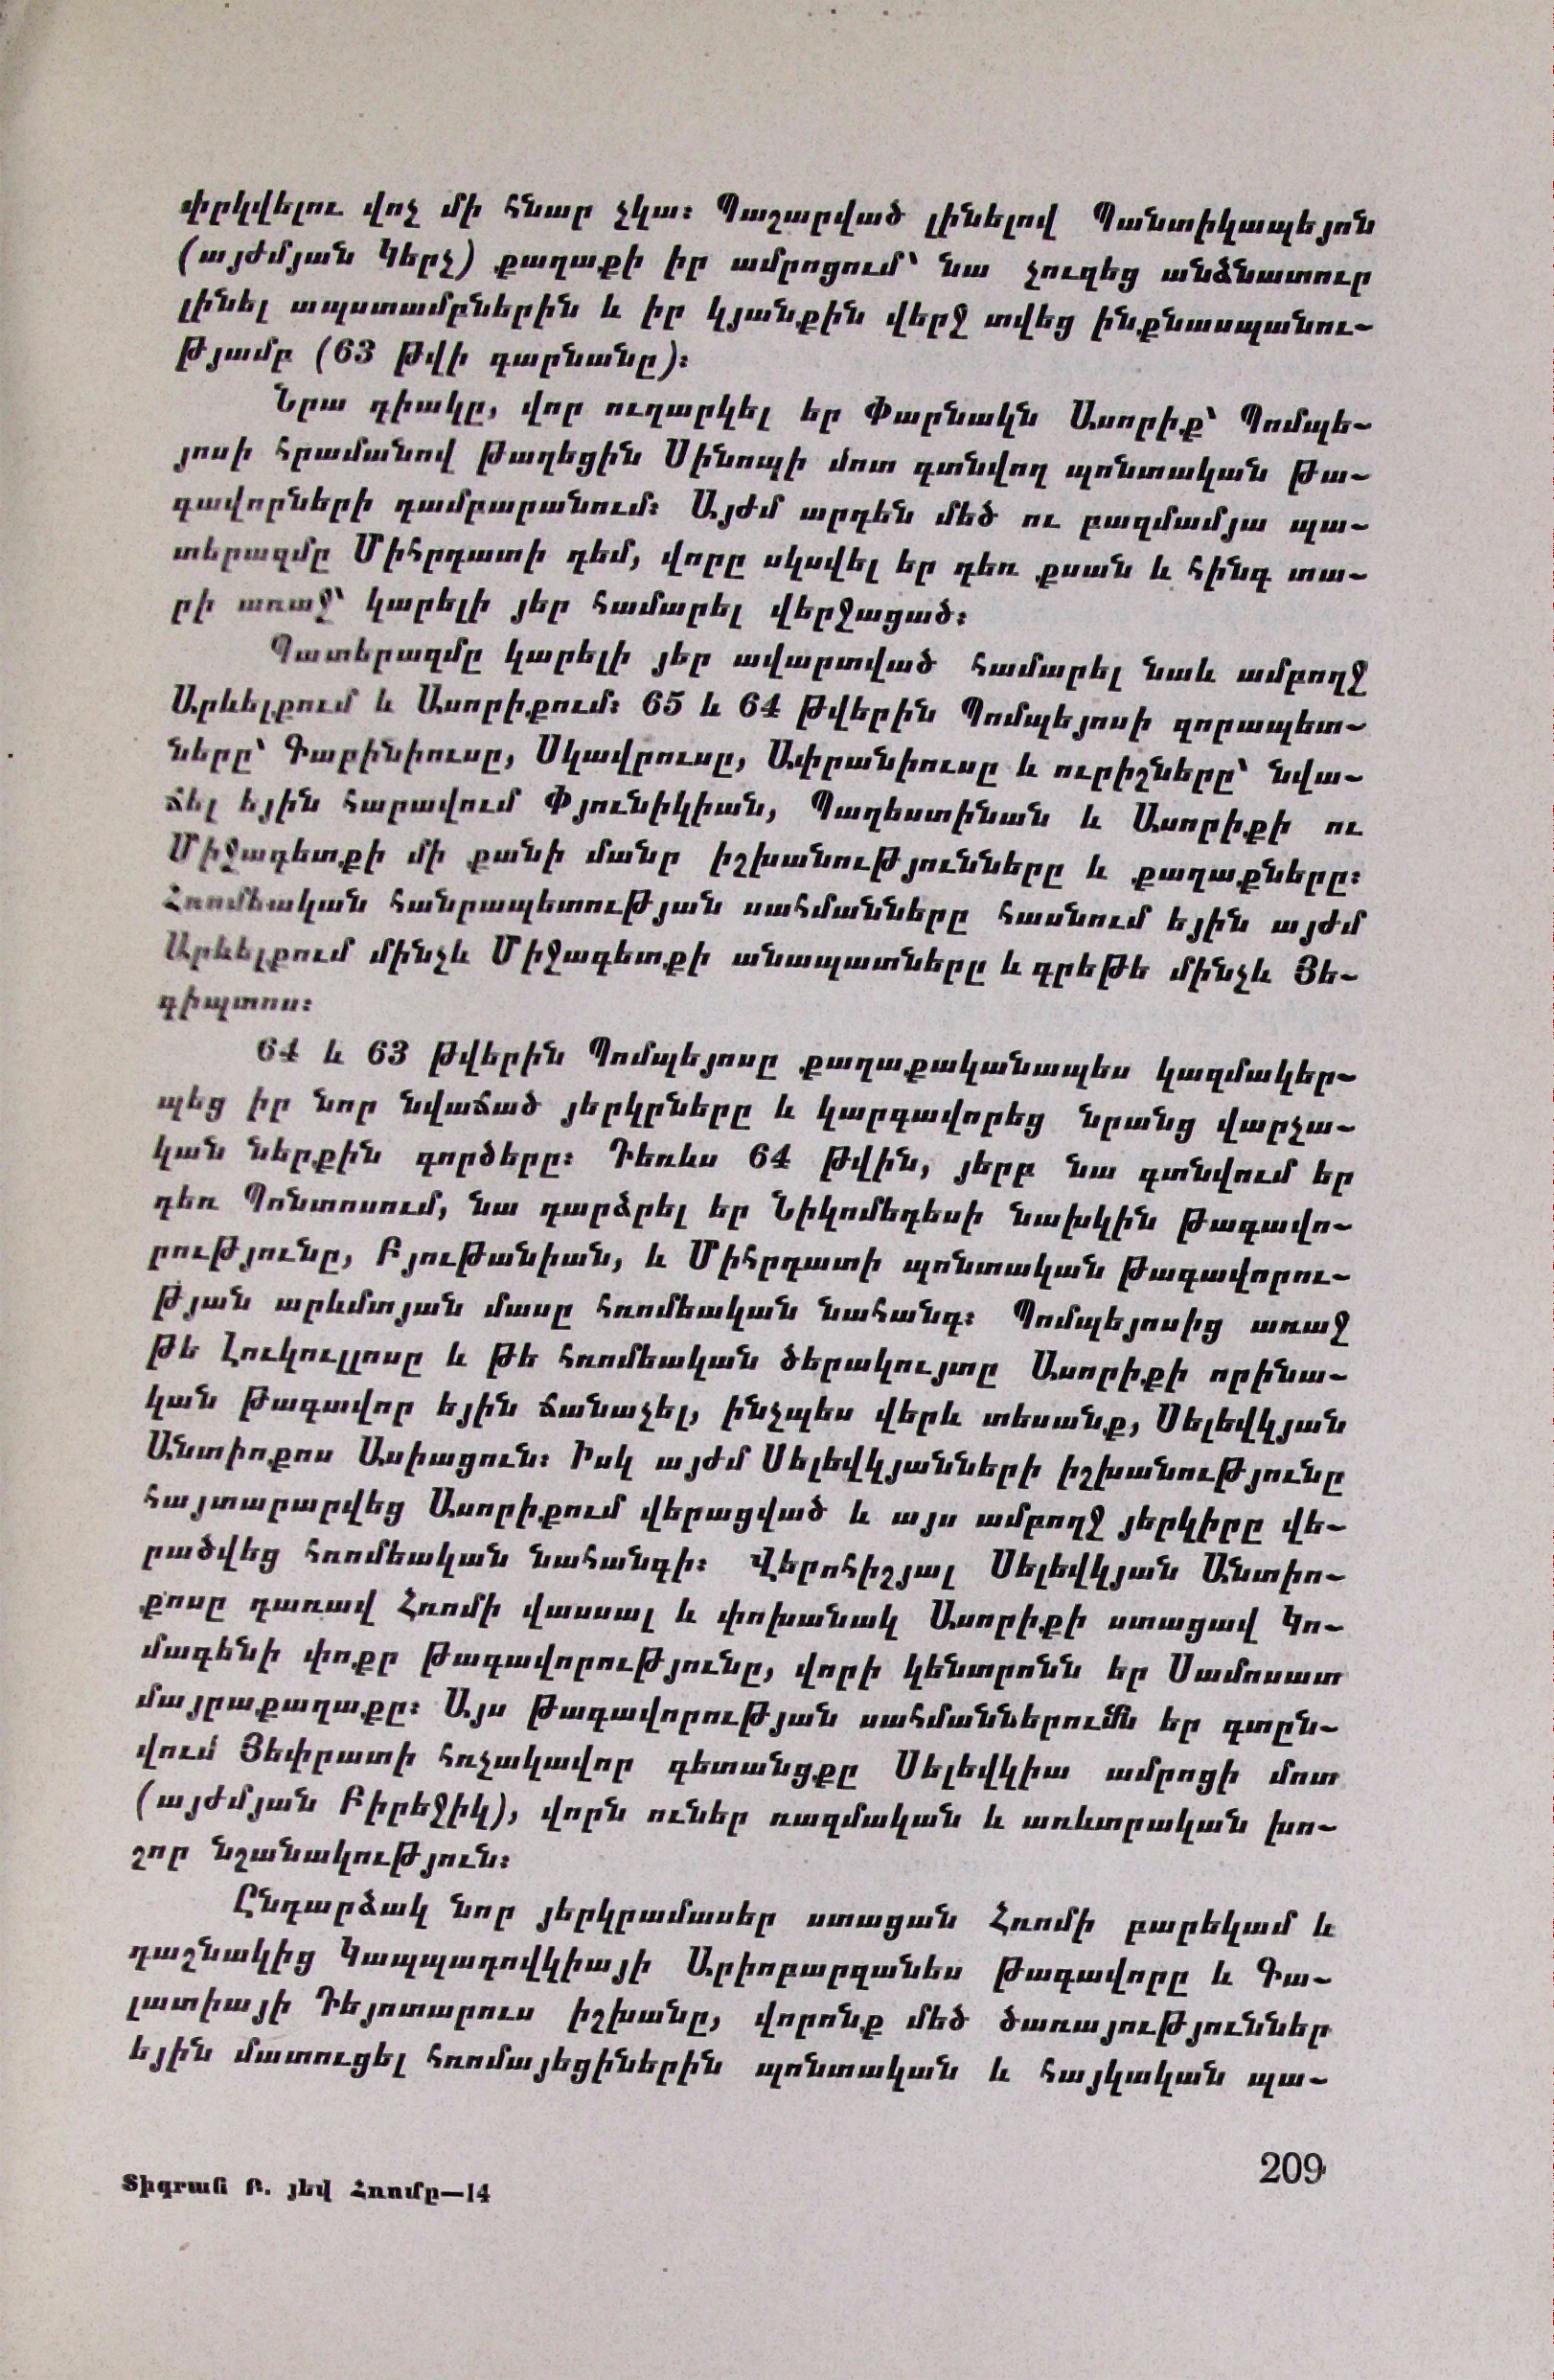 փրկվելու վոչ մի հնար չկա։ Պաշարված լինելով Պանտիկապեյոն
(այժմյան Կերչ) քաղաքի իր ամրոցում՝ նա չուզեց անձնատուր
լինել ապստամբներին և իր կյանքին վերջ տվեց ինքնասպանու-
թյամբ (63 թվի գարնանը)։
Նրա դիակը, վոր ուղարկել եր Փարնակն Ասորիք՝ Պոմպե-
յոսի հրամանով թաղեցին Սինոպի մոտ գտնվող պոնտական թա-
գավորների դամբարանում։ Այժմ արդեն մեծ ու բազմամյա պա-
տերազմը Միհրդատի դեմ, վորը սկսվել եր դեռ քսան և հինգ տա-
րի առաջ՝ կարելի յեր համարել վերջացած։
Պատերազմը կարելի յեր ավարտված համարել նաև ամբողջ
Արևելքում և Ասորիքում։ 65 և 64 թվերին Պոմպեյոսի զորապետ-
ները՝ Գաբինիուսը, Սկավրուսը, Ափրանիուսը և ուրիշները՝ նվա-
ճել եյին հարավում Փյունիկիան, Պաղեստինան և Ասորիքի ու
Միջագետքի մի քանի մանր իշխանությունները և քաղաքները։
Հռոմեական հանրապետության սահմանները հասնում եյին այժմ
Արևելքում մինչև Միջագետքի անապատները և գրեթե մինչև Յե-
գիպտոս։
64 և 63 թվերին Պոմպեյոսը քաղաքականապես կազմակեր-
պեց իր նոր նվաճած յերկրները և կարգավորեց նրանց վարչա-
կան ներքին գործերը։ Դեռևս 64 թվին, յերբ նա գտնվում եր
դեռ Պոնտոսում, նա դարձրել եր Նիկոմեդեսի նախկին թագավո-
րությունը, Բյութանիան, և Միհրդատի պոնտական թագավորու-
թյան արևմտյան մասը հռոմեական նահանգ։ Պոմպեյոսից առաջ
թե Լուկուլլոսը և թե հռոմեական ծերակույտը Ասորիքի որինա-
կան թագավոր եյին ճանաչել, ինչպես վերև տեսանք, Սելեվկյան
Անտիոքոս Ասիացուն։ Իսկ այժմ Սելեվկյանների իշխանությունը
հայտարարվեց Ասորիքում վերացված և այս ամբողջ յերկիրը վե-
րածվեց հռոմեական նահանգի։ Վերոհիշյալ Սելեվկյան Անտիո-
քոսը դառավ Հռոմի վասսալ և փոխանակ Ասորիքի ստացավ Կո-
մագենի փոքր թագավորությունը, վորի կենտրոնն եր Սամոսատ
մայրաքաղաքը։ Այս թագավորության սահմաններումն եր գտըն-
վում Յեփրատի հռչակավոր գետանցքը Սելեվկիա ամրոցի մոտ
(այժմյան Բիրեջիկ), վորն ուներ ռազմական և առևտրական խո-
շոր նշանակություն։
Ընդարձակ նոր յերկրամասեր ստացան Հռոմի բարեկամ և
դաշնակից Կապպադովկիայի Արիոբարզանես թագավորը և Գա-
լատիայի Դեյոտարուս իշխանը, վորոնք մեծ ծառայություններ
եյին մատուցել հռոմայեցիներին պոնտական և հայկական պա-
Տիգրան Բ. յեվ Հռոմը—14
209